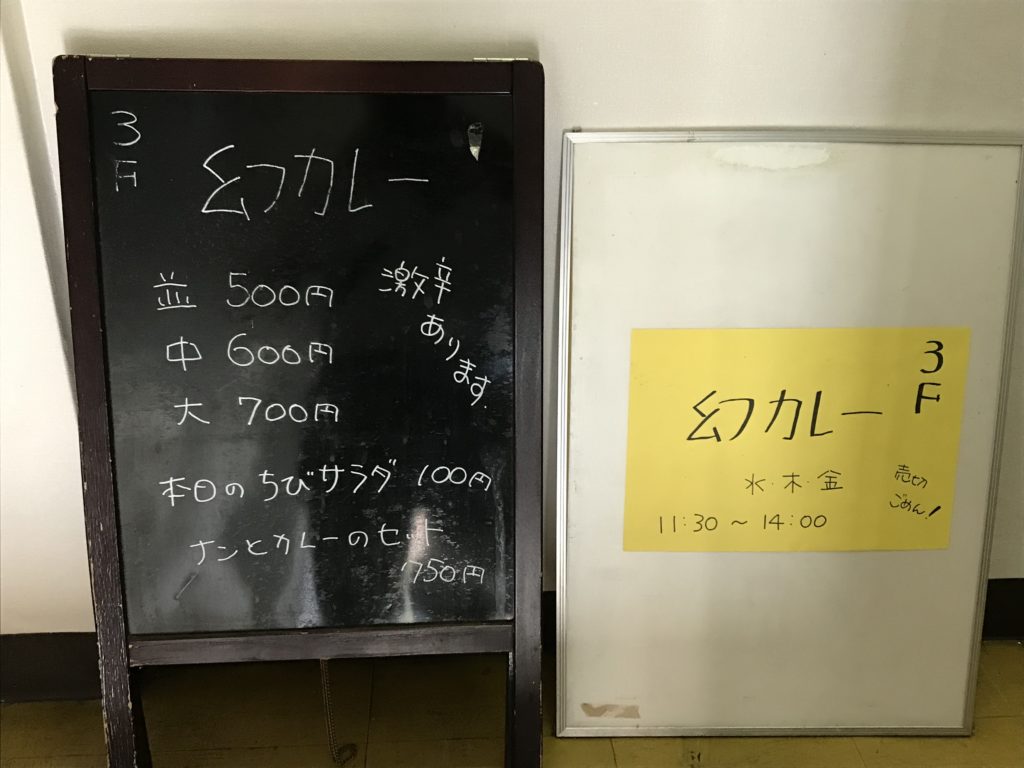 3
F
幻カレー
並 500円
激辛
あります.
中 600円
大 700円
本日のちびサラダ 100円
ナンとカレーのセット
750円
3
F
幻カレー
水・木・金
売切
ごめん!
11:30 ～ 14:00